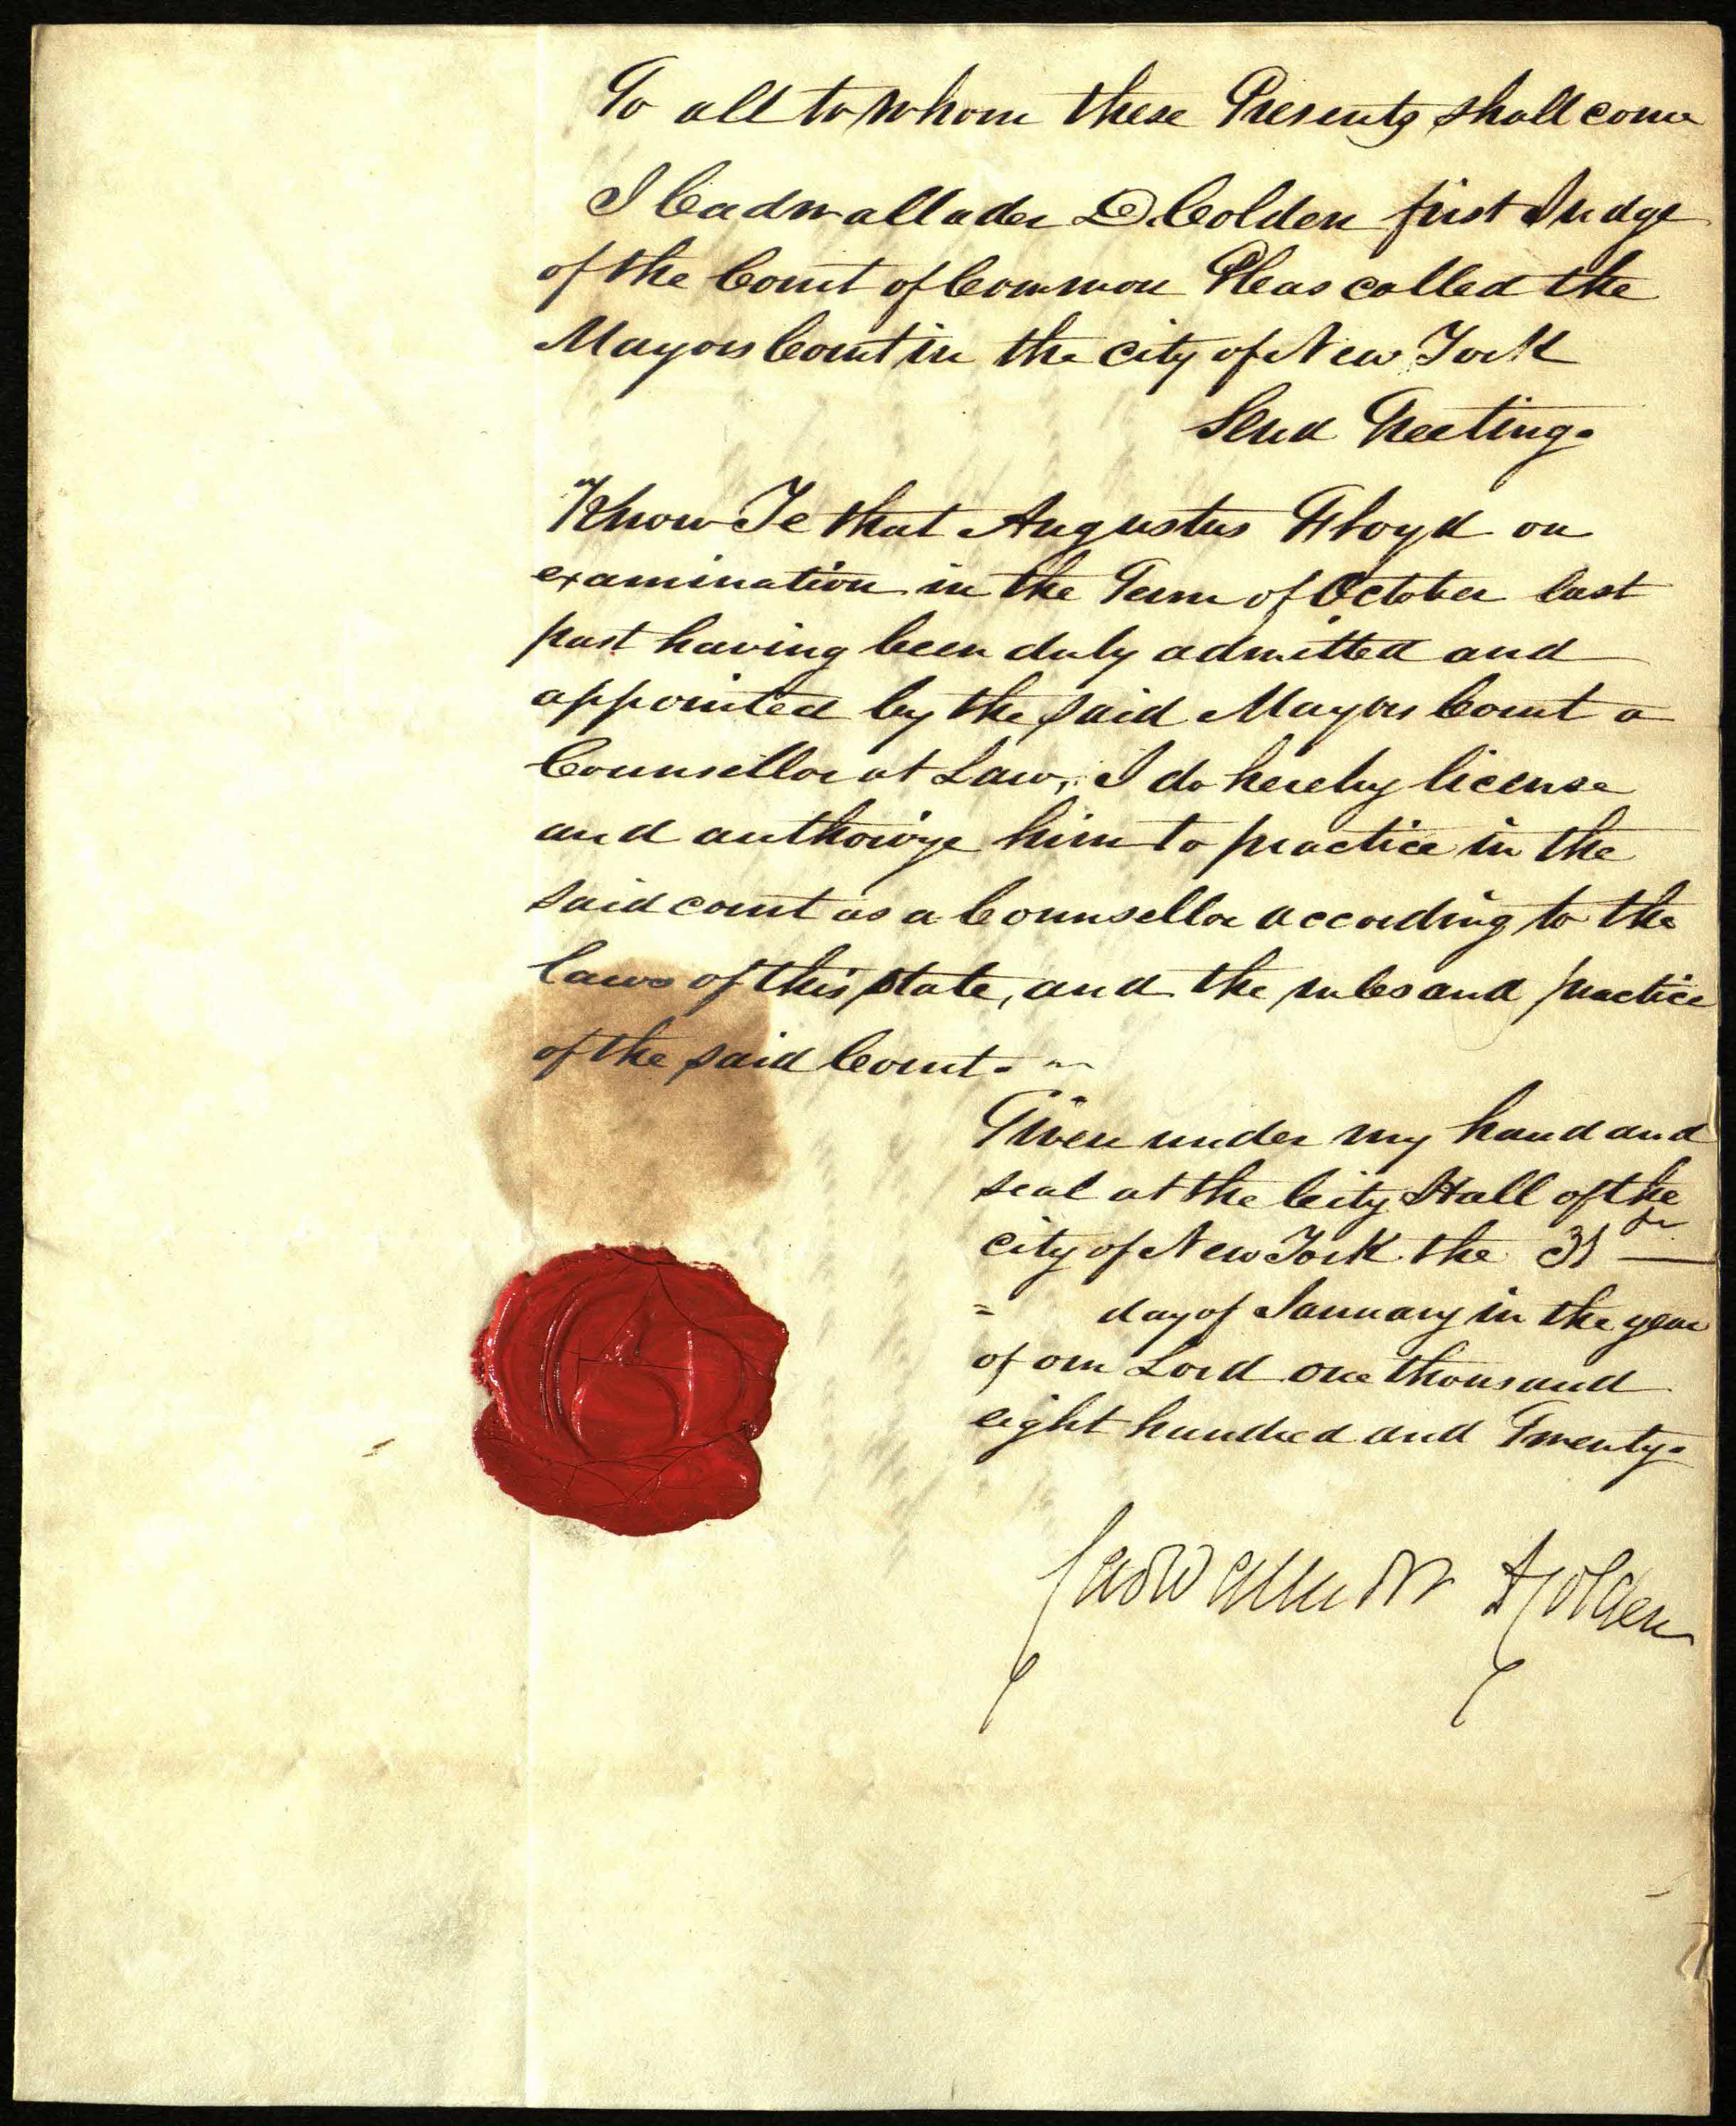 To all to whom these Presents shall come
I Cadwallader D. Colden first Judge
of the Court of Common Pleas called the
Mayors Court in the city of New York
Send Greeting.
Know Ye that Augustus Floyd on
examination in the Term of October last
past having been duly admitted and
appointed by the said Mayors Court a
Counsellor at Law, I do hereby license
and authorize him to practice in the
said court as a Counsellor according to the
laws of this state, and the rules and practice
of the said Court.
Given under my hand and
seal at the City Hall of the
city of New York the 31
= day of January in the year
of our Lord one thousand
eight hundred and Twenty.
Cadwallader D Colden